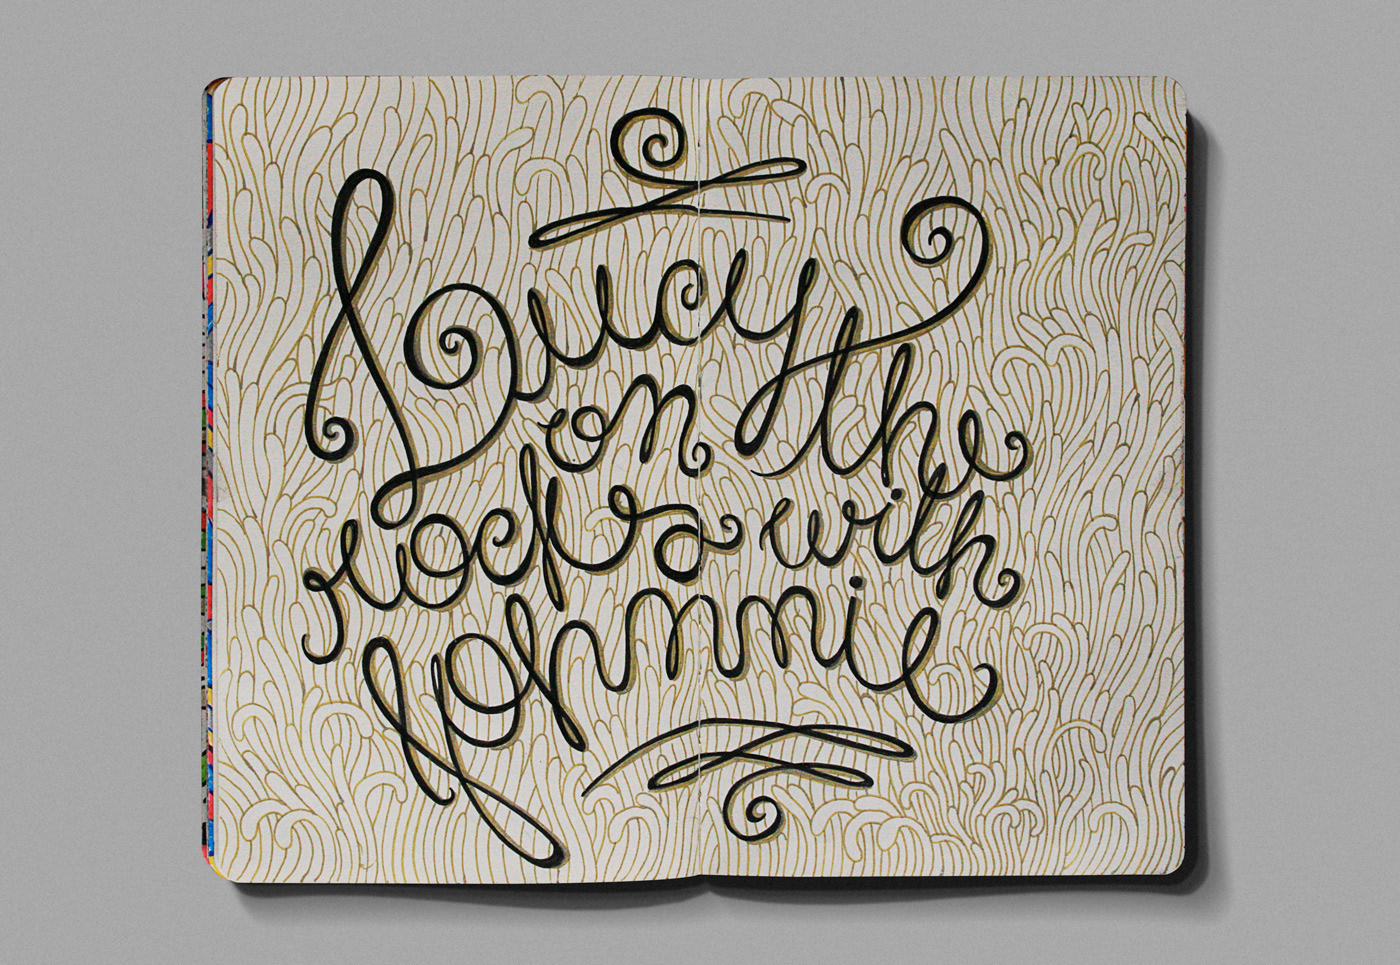 Lucy
on the
rocks with
Johnnie